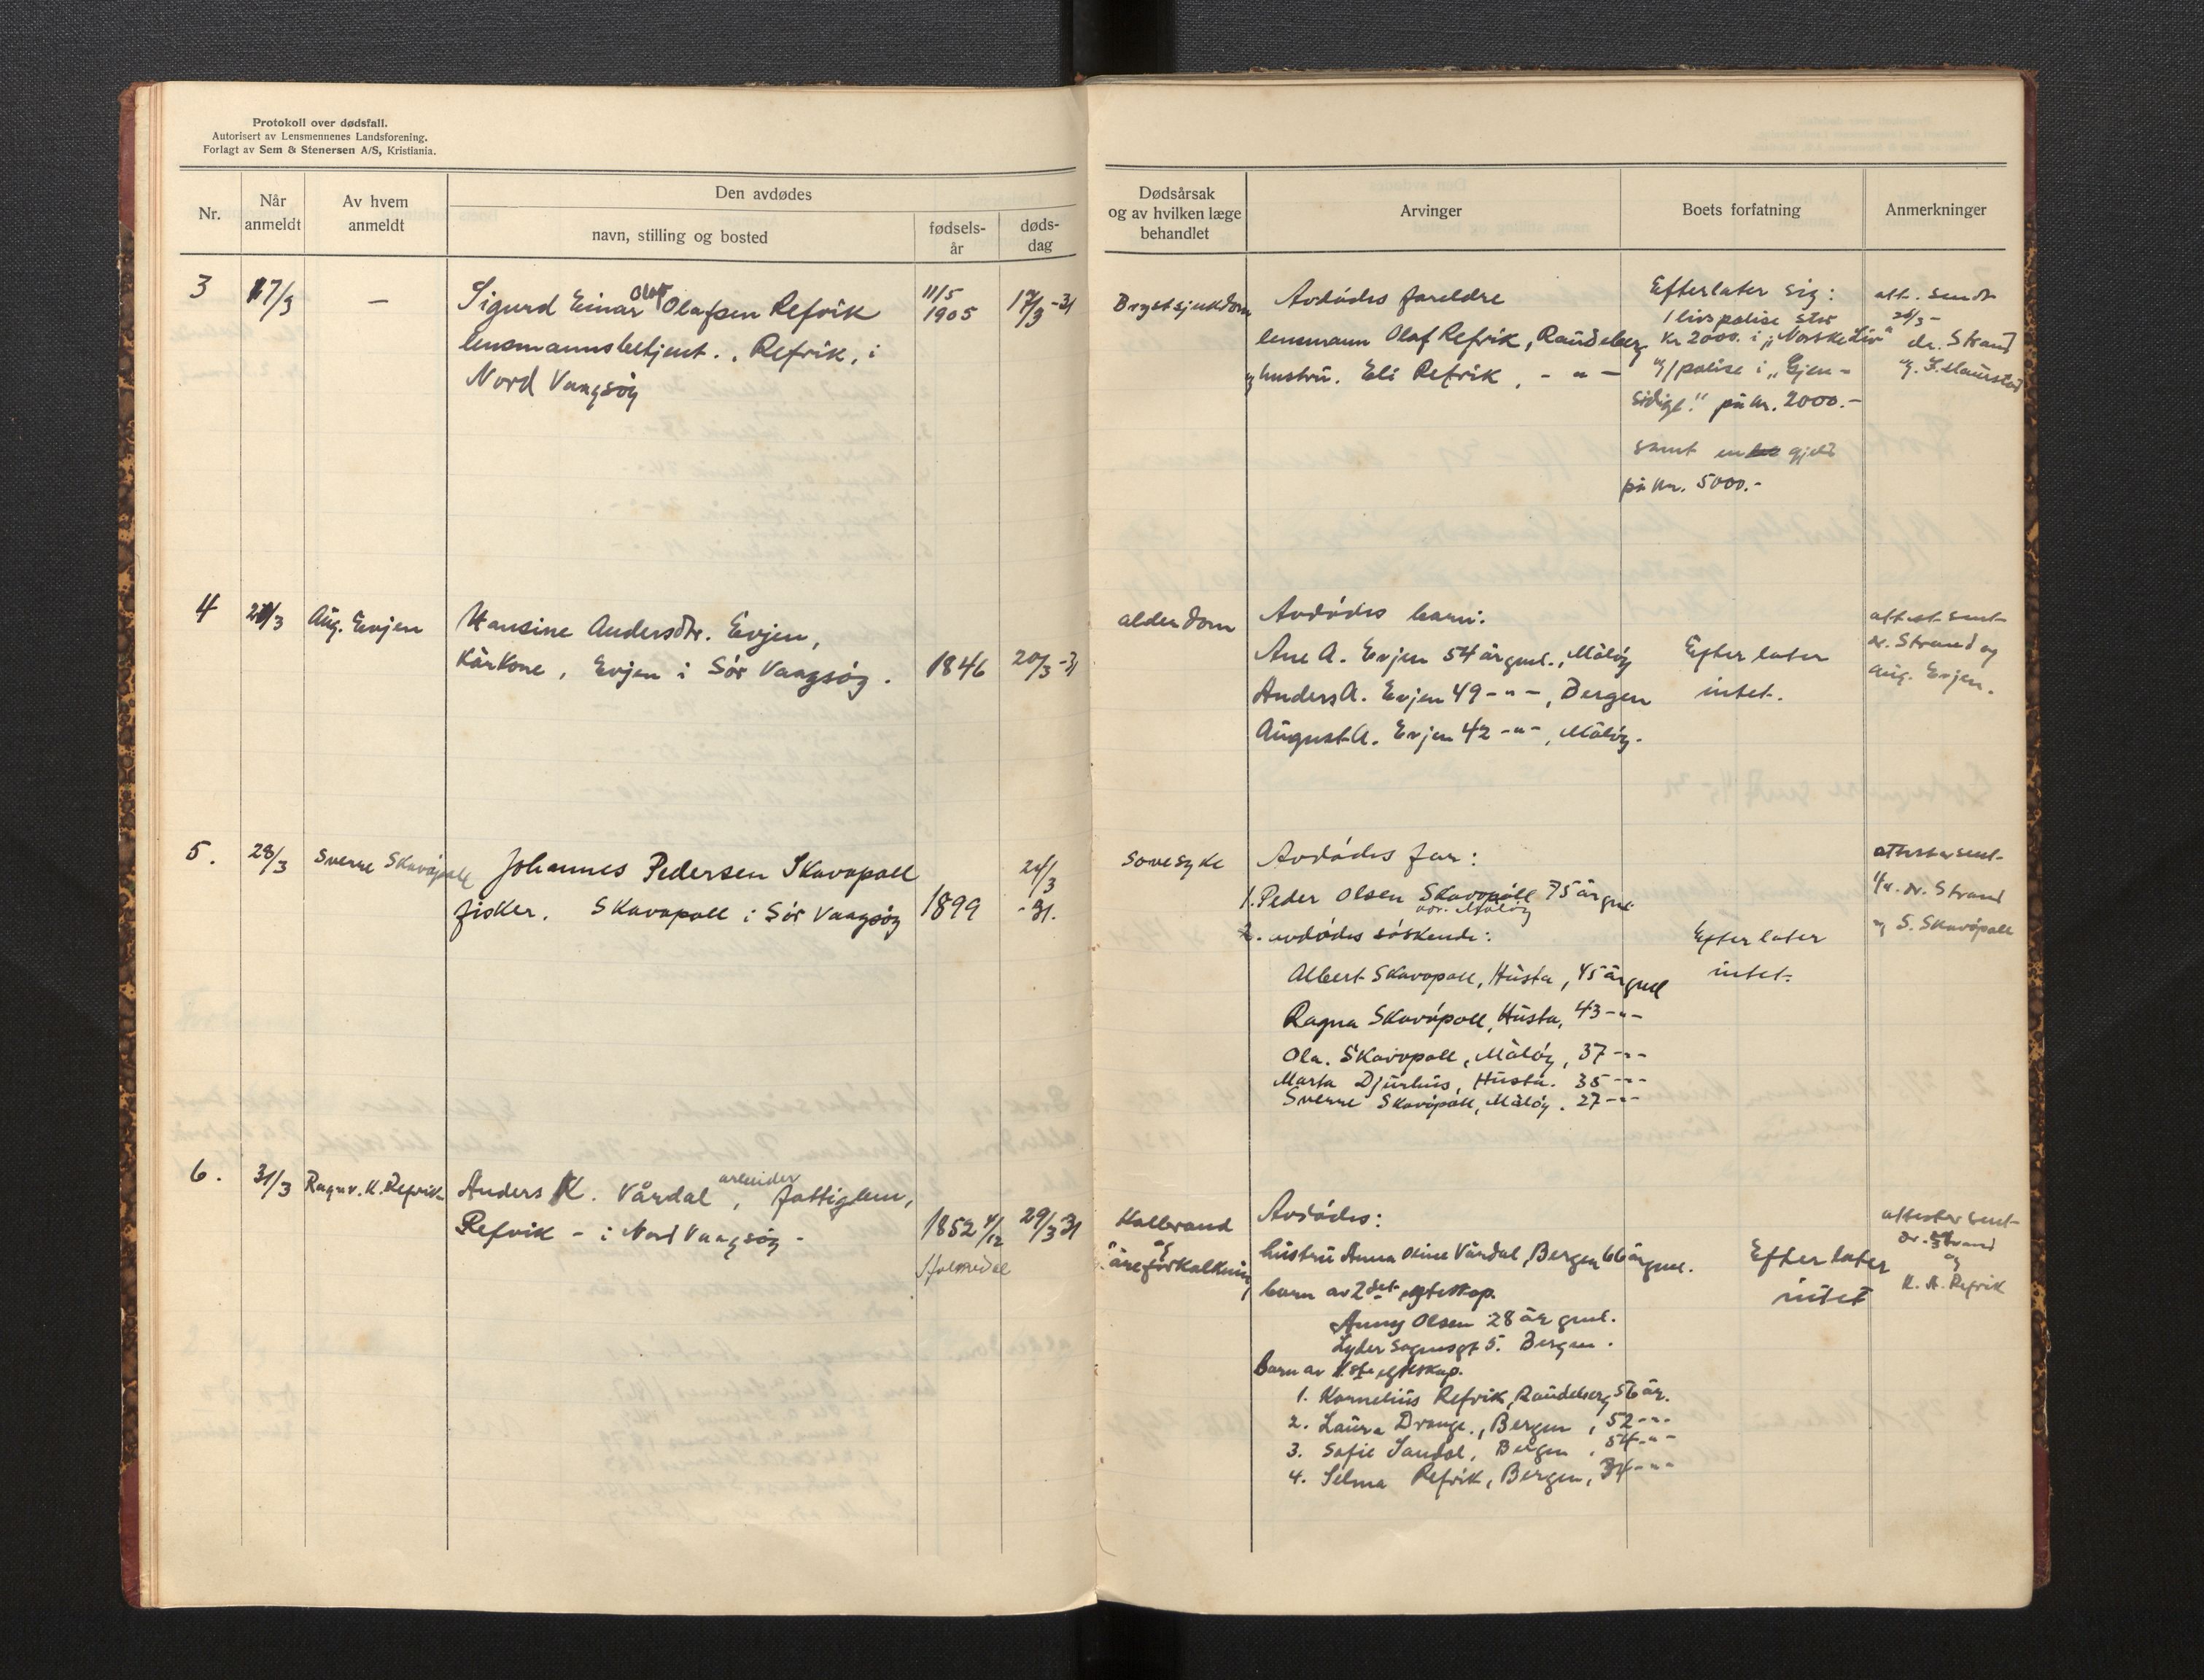 Protokoll over dødsfall.
Autorisert av Lensmennenes Landsforening.
Forlagt av Sem & Stenersen A/S, Kristiania.
Nr.
Når anmeldt
Av hvem anmeldt
Den avdødes
navn, stilling og bosted
fødsels-
år
døds-
dag
Dødsårsak
og av hvilken læge
behandlet
Arvinger
Boets forfatning
Anmerkninger
3
17/3
—
Sigurd Einar Olaf Olafsen Refvik
lensmannsbetjent., Refvik, i
Nord Vaagsöy
11/5
1905
17/3-31
Brystsjukdom
Avdödes foreldre
lensmann Olaf Refvik, Raudeberg
og hustru. Eli Refvik, - " -
Efterlater sig:
1 livspolise stor
kr 2000. i „Norske Liv"
og 1 polise i „Gjen-
sidige." på kr. 2000.-
samt en gjeld
på kr. 5000.-
att. sendt
26/3-
dr. Strand
og. F. Maurstad
4
21/3
Aug. Evjen
Hansine Andersdtr. Evjen,
Kårkone, Evjen i Sör Vaagsöy.
1846
20/3-31
alderdom
Avdödes barn:
Ane A. Evjen 54 år gml., Målöy
Anders A. Evjen 49 - " -, Bergen
August A. Evjen 42 - " -, Målöy.
Efterlater
intet.
attest sent
dr. Strand og
Aug. Evjen.
5.
28/3
Sverre Skavöpoll
Johannes Pedersen Skavøpoll
fisker. Skavøpoll i Sör Vaagsöy
1899
24/3
-31.
Sovesyke
Avdödes far:
1. Peder Olsen Skavøpoll 75 år gml.
adr. Målöy
2. avdödes söskende:
Albert Skavøpoll, Husta, 45 år gml
Ragna Skavöpoll, Husta, 43 - " -
Ola. Skavøpoll, Målöy, 37 - " -
Marta Djurhus, Husta. 35 - " -
Sverre Skavöpoll, Målöy. 27 - " -
Efterlater
intet.
attester sent
1/4. dr. Strand
og S. Skavöpoll
6.
31/3
Ragnv. K. Refvik
Anders K. Vårdal, arbeider, fattiglem,
Refvik - i Nord Vaagsöy -
1852 4/12
Holmedal
29/3 31
Kolbrand
og
åreforkalkning
Avdödes:
hustru Anna Oline Vårdal, Bergen 66 år gml.
barn av 2det egteskap.
Anny Olsen 28 år gml.
Lyder Sagensgt 5. Bergen.
Barn av 1ste egteskap.
1. Kornelius Refvik, Raudeberg 56 år.
2. Laura Drange., Bergen, 52 - " -
3. Sofie Sandal, Bergen, 54 - " -
4. Selma Refvik, Bergen, 34 - " -
Efterlater
intet
attester sent
dr. Strand
og
K. A. Refvik